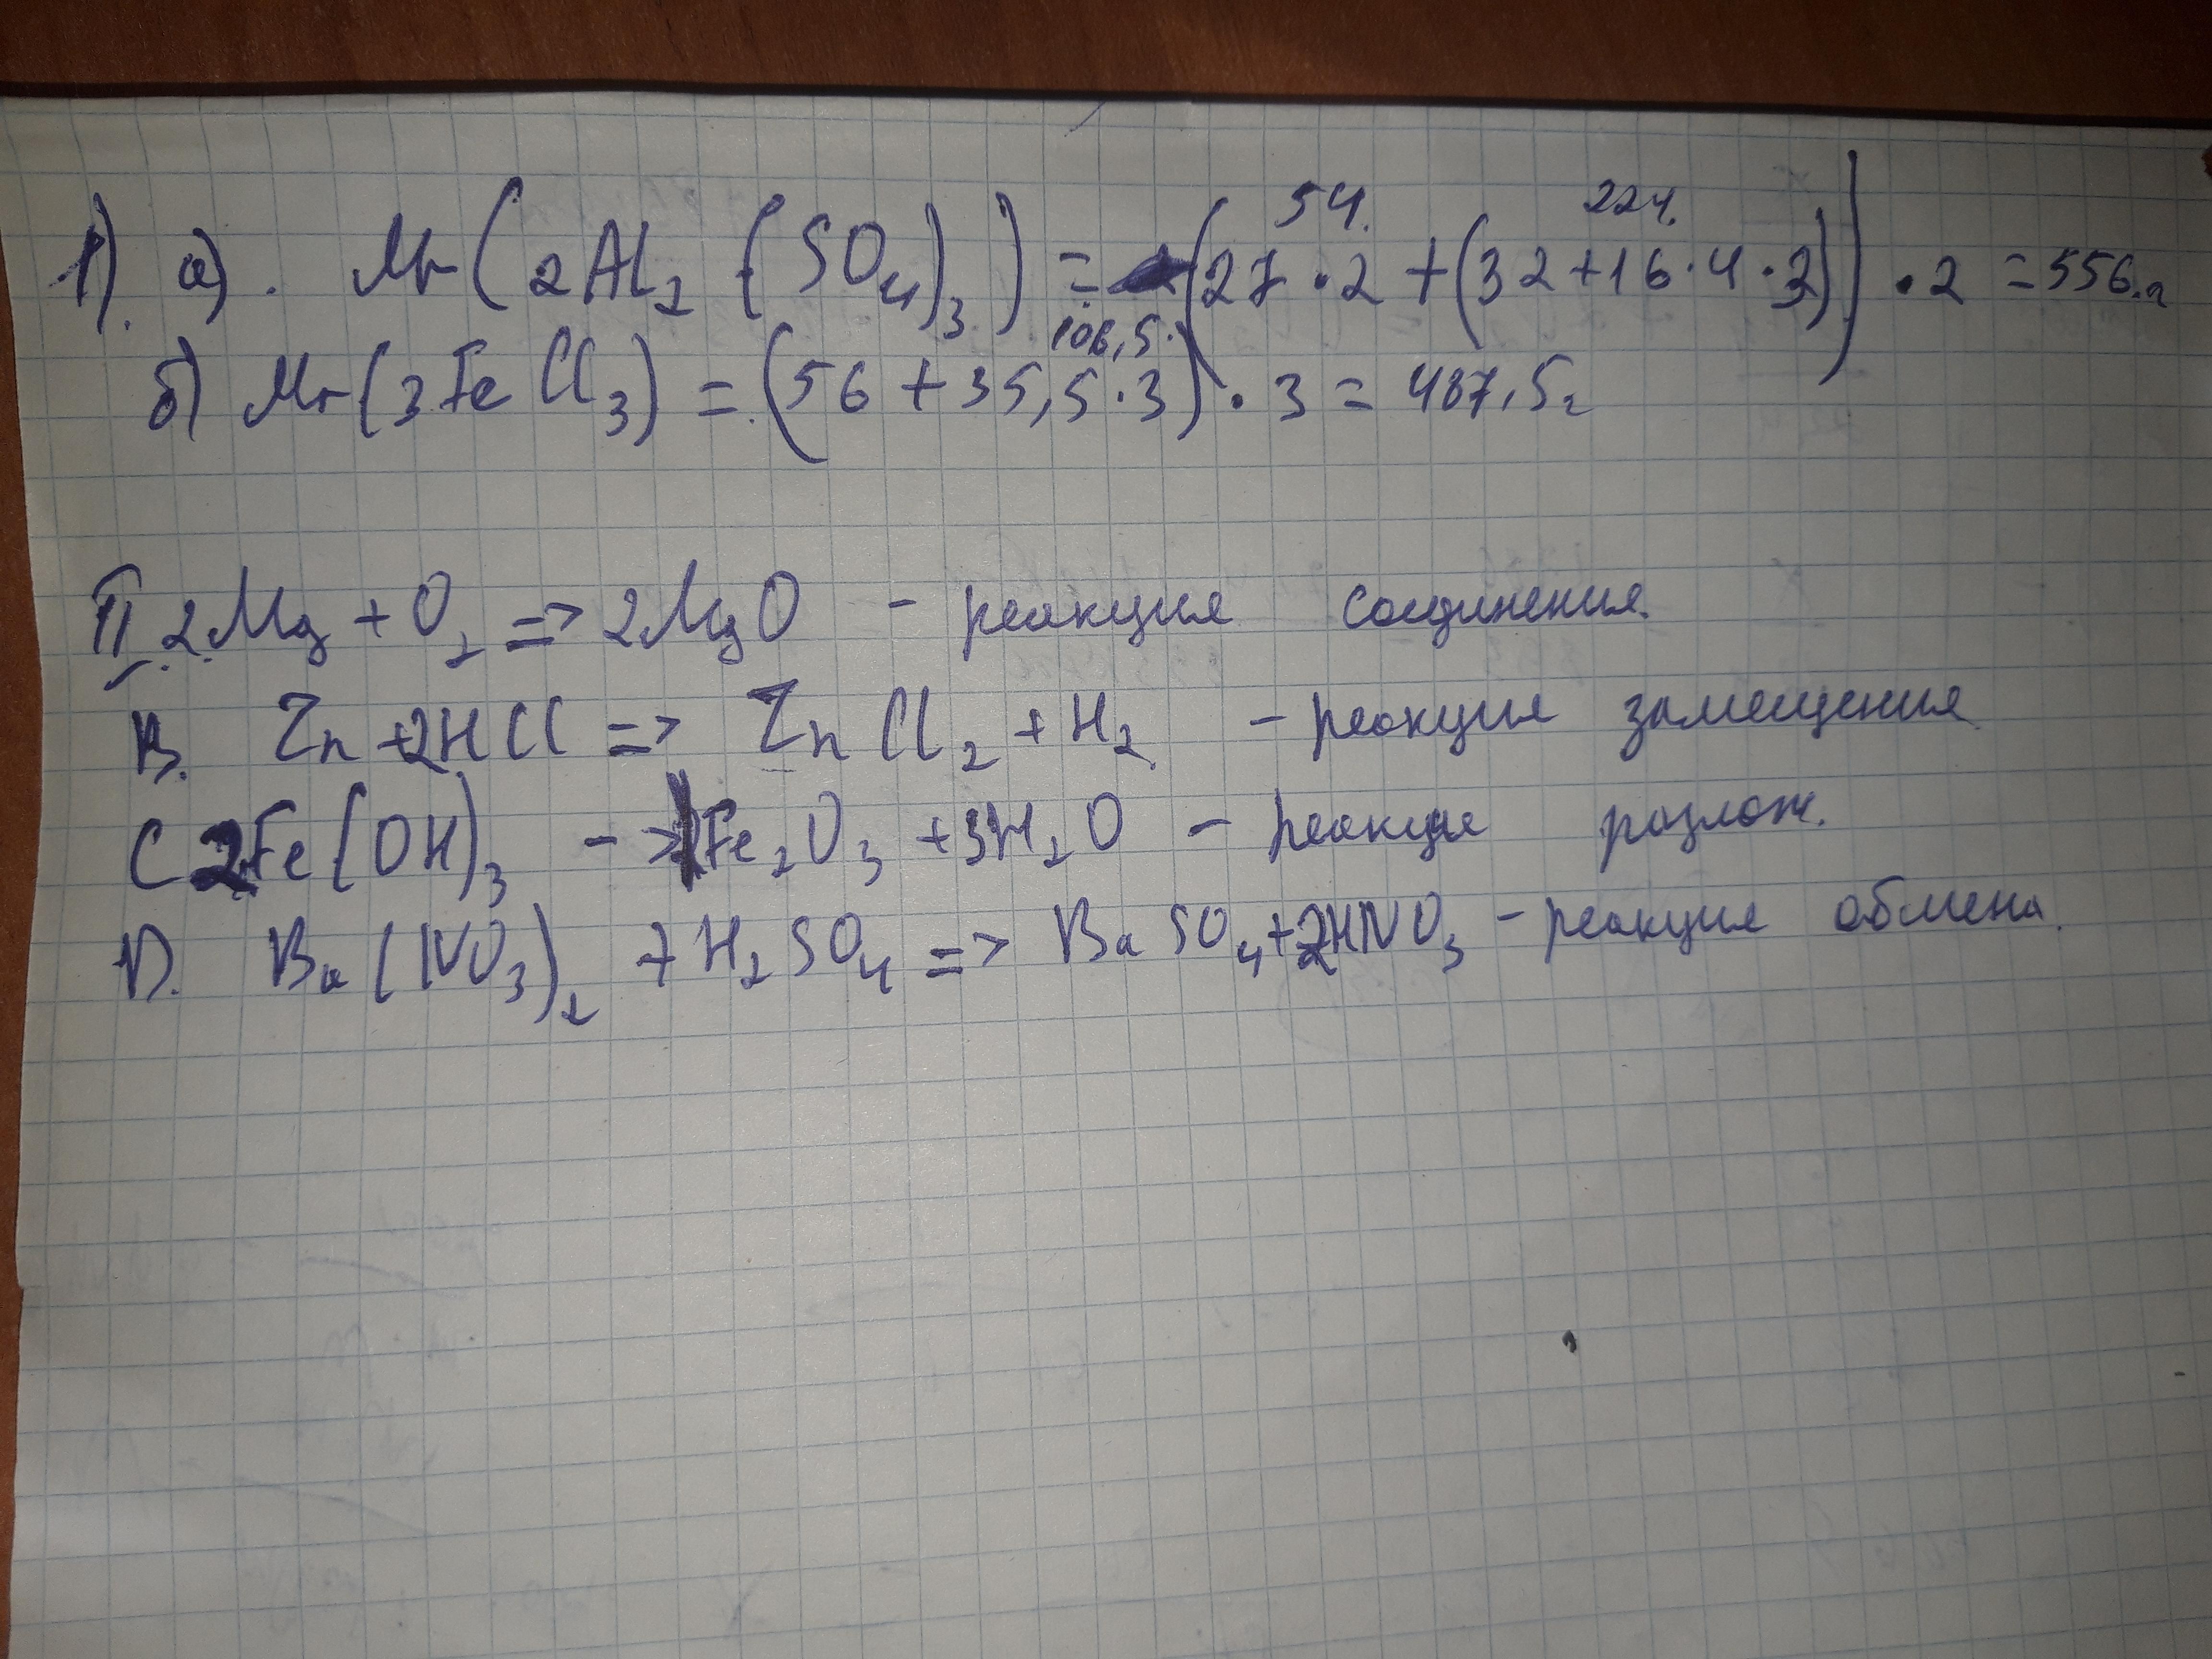 1) а). Mr(2Al₂(SO₄)₃) = (27·2+(32+16·4·3))·2 =556.г
54. 224.
б) Mr(3FeCl₃) = (56+35,5·3)·3= 487,5г
106,5.
II. 2Mg+O₂=>2MgO - реакция соединения.
B. Zn+2HCl=> ZnCl₂+H₂ - реакция замещения
C 2Fe(OH)₃ -> Fe₂O₃+3H₂O - реакция разлож.
D. Ba(NO₃)₂ + H₂SO₄=> BaSO₄+2HNO₃ - реакция обмена.